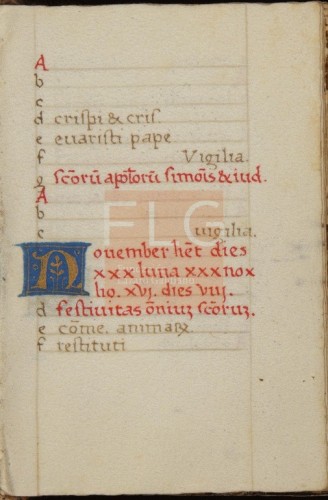 A
b
c
d crispi & cris.
e evaristi pape
f Vigilia.
g sc̄orū ap̄l'orū simōis & iud.
A
b
c uigilia.
Nouember hēt dies
xxx luna xxx nox
ho. xvj. dies viij.
d festiuitas ōniuz sc̄oruz.
e cōme. animaꝝ
f restituti
FLG